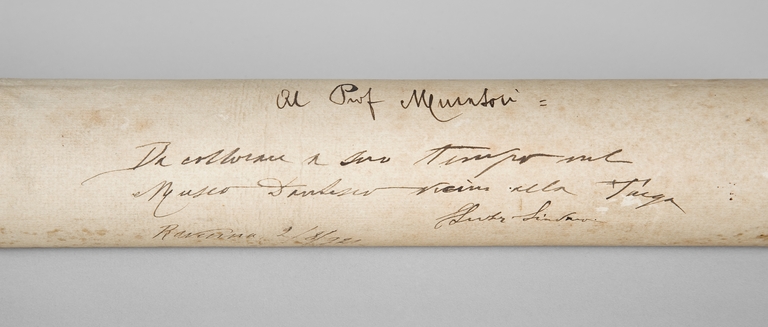 Al Prof Muratori =
Da collocare a suo tempo nel
Museo Dantesco vicino alla Targa
Ravenna 2